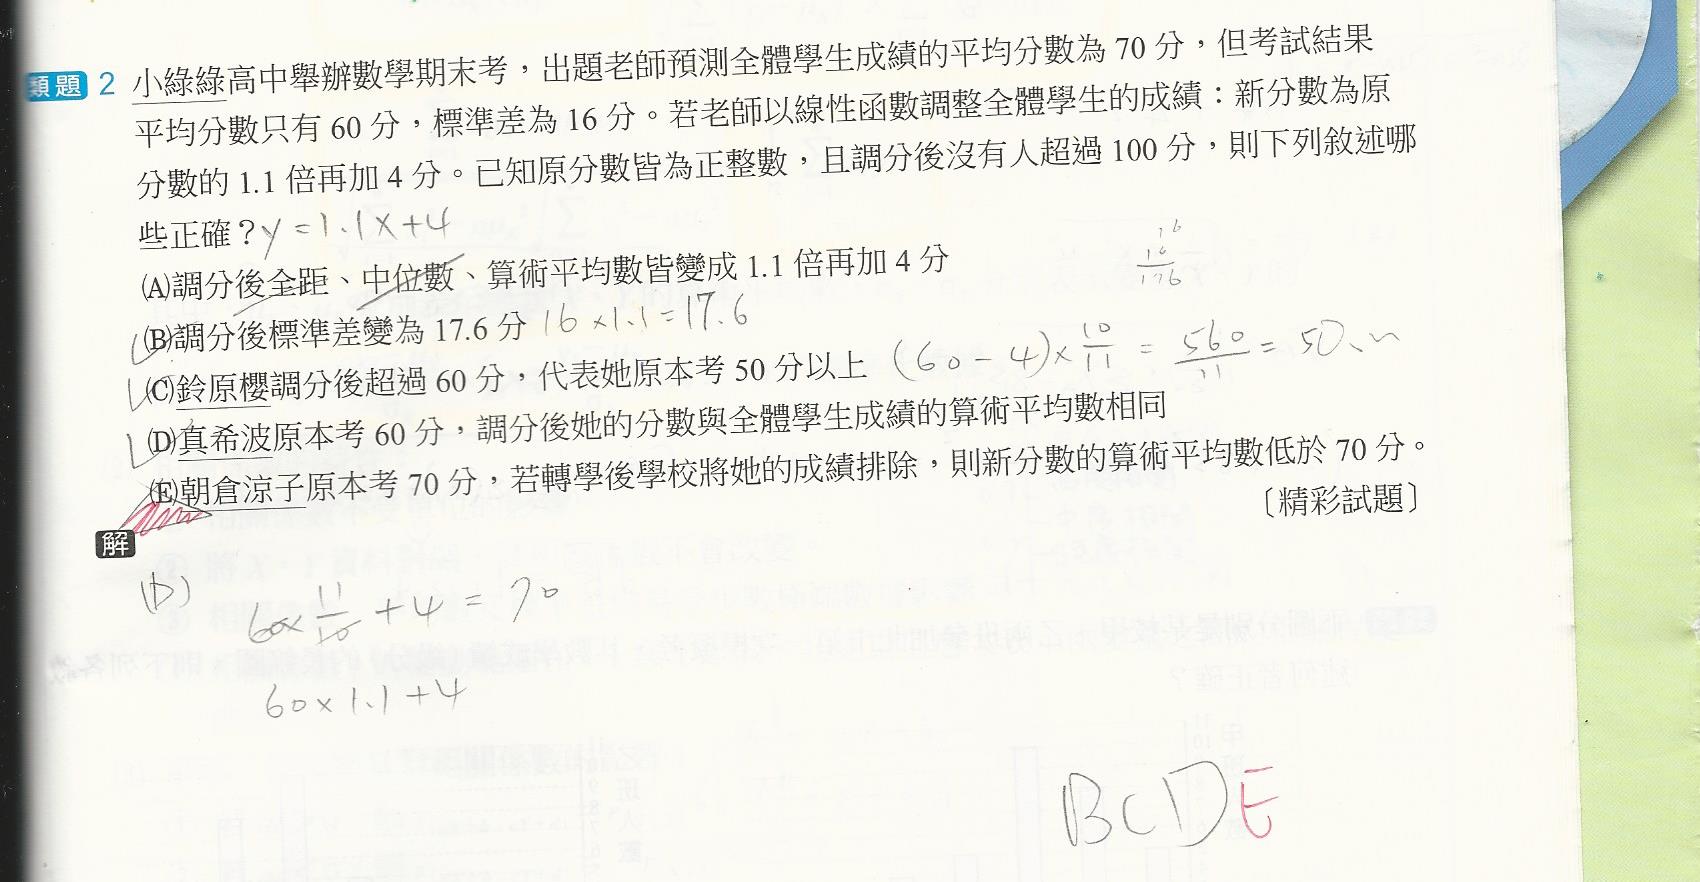 類題 2 小綠綠高中舉辦數學期末考，出題老師預測全體學生成績的平均分數為 70 分，但考試結果
平均分數只有 60 分，標準差為 16 分。若老師以線性函數調整全體學生的成績：新分數為原
分數的 1.1 倍再加 4 分。已知原分數皆為正整數，且調分後沒有人超過 100 分，則下列敘述哪
些正確？y = 1.1x+4
16
16
176
(A)調分後全距、中位數、算術平均數皆變成 1.1 倍再加 4 分
(B)調分後標準差變為 17.6 分 16×1.1=17.6
(C)鈴原櫻調分後超過 60 分，代表她原本考 50 分以上 (60-4)×10/11 = 560/11 = 50、
(D)真希波原本考 60 分，調分後她的分數與全體學生成績的算術平均數相同
(E)朝倉涼子原本考 70 分，若轉學後學校將她的成績排除，則新分數的算術平均數低於 70 分。
〔精彩試題〕
解
(D) 60×11/10 +4 = 70
60×1.1+4
BCDE